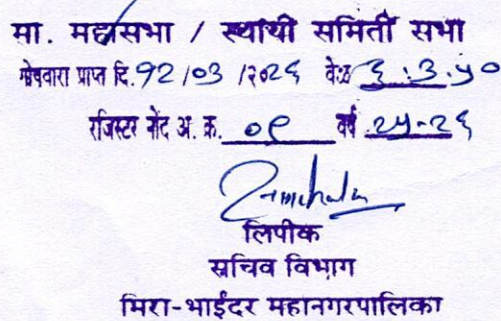 मा. महासभा / स्थायी समिती सभा
गोषवारा प्राप्त दि. १२/०३/२०२६ वेळ ६.३.५०
रजिस्टर नोंद अ. क्र. ०९ वर्ष २५-२६
लिपीक
सचिव विभाग
मिरा-भाईंदर महानगरपालिका